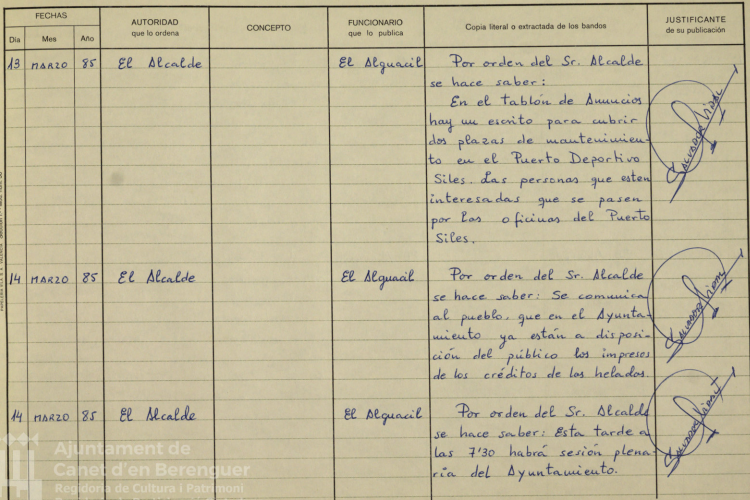 FECHAS
Dia Mes Año
AUTORIDAD
que lo ordena
CONCEPTO
FUNCIONARIO
que lo publica
Copia literal o extractada de los bandos
JUSTIFICANTE
de su publicación
13 MARZO 85 El Alcalde El Alguacil Por orden del Sr. Alcalde
se hace saber:
En el tablón de Anuncios
hay un escrito para cubrir
dos plazas de mantenimien-
to en el Puerto Deportivo
Siles. Las personas que esten
interesadas que se pasen
por las oficinas del Puerto
Siles.
Salvador Vidal
14 MARZO 85 El Alcalde El Alguacil Por orden del Sr. Alcalde
se hace saber: Se comunica
al pueblo, que en el Ayunta-
miento ya están a disposi-
ción del público los impresos
de los créditos de las heladas.
Salvador Vidal
14 MARZO 85 El Alcalde El Alguacil Por orden del Sr. Alcalde
se hace saber: Esta tarde a
las 7'30 habrá sesión plena-
ria del Ayuntamiento.
Salvador Vidal
Ajuntament de
Canet d'en Berenguer
Regidoria de Cultura i Patrimoni